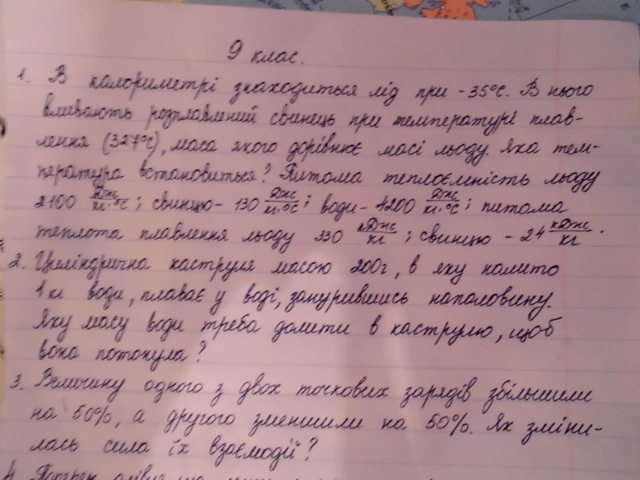 9 клас.
1. В калориметрі знаходиться лід при -35°С. В нього
вливають розплавлений свинець при температурі плав-
лення (327°С), маса якого дорівнює масі льоду. Яка тем-
пература встановиться? Питома теплоємність льоду
2100 Дж/кг·°С; свинцю - 130 Дж/кг·°С; води - 4200 Дж/кг·°С; питома
теплота плавлення льоду 330 кДж/кг; свинцю - 24 кДж/кг.
2. Циліндрична каструля масою 200г, в яку налито
1 кг води, плаває у воді, занурившись наполовину.
Яку масу води треба долити в каструлю, щоб
вона потонула?
3. Величину одного з двох точкових зарядів збільшили
на 50%, а другого зменшили на 50%. Як зміни-
лась сила їх взаємодії?
4.